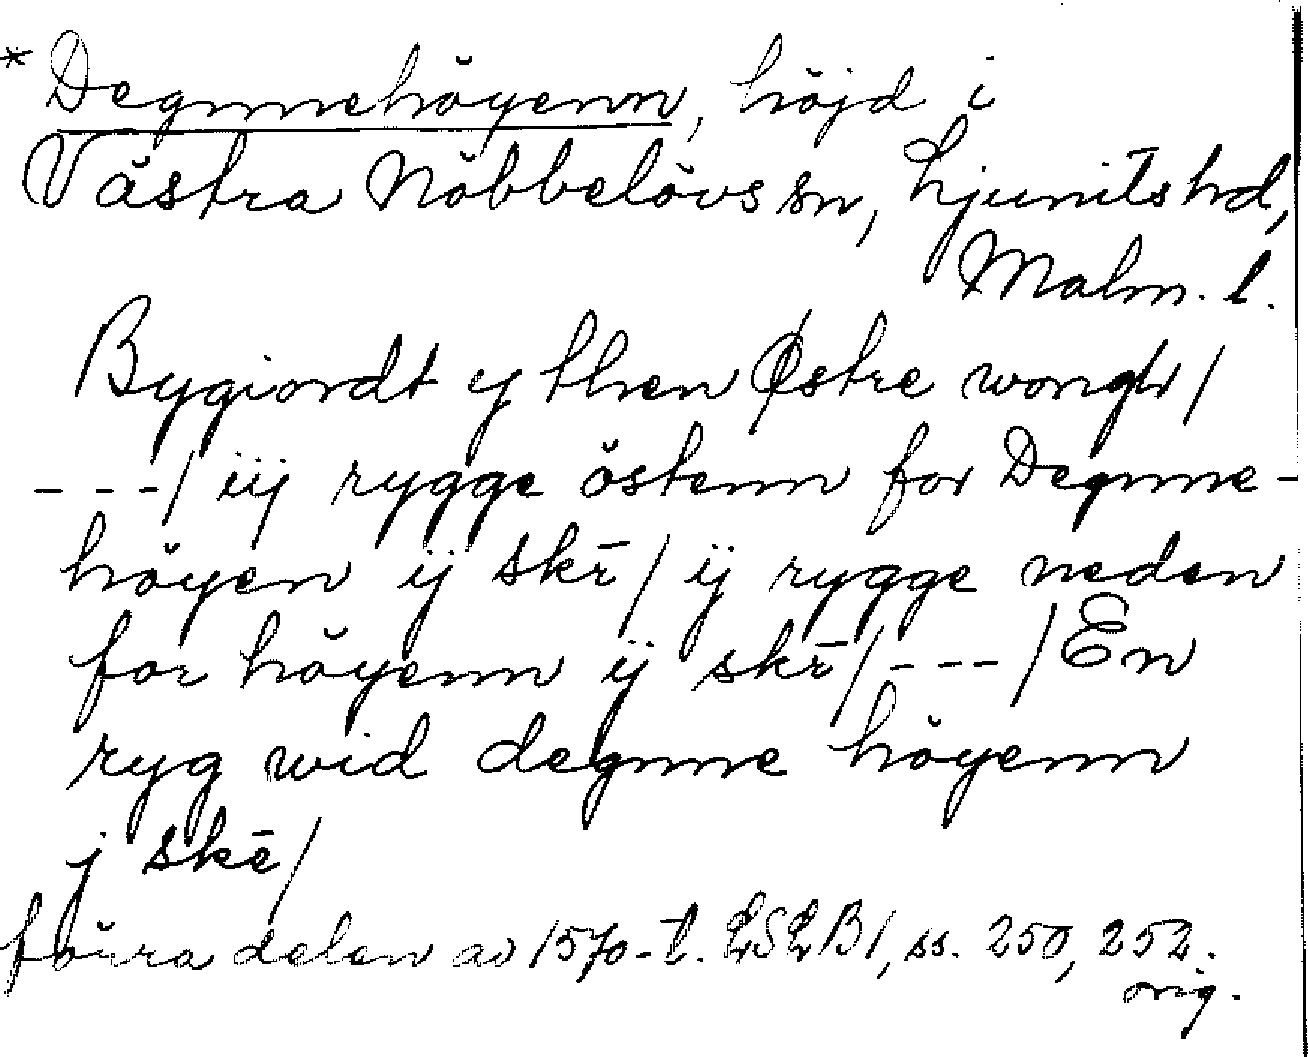 * Degnnehöyenn, höjd i
Västra Nöbbelövs sn, Ljunits hd,
Malm. l.
Bygiordt y then Østre wongh/
- - -/ iij rygge östenn for Degnne-
höyen ij skr̄/ ij rygge neden
for höyenn ij skr̄/- - -/ En
ryg wid degnne höyenn
j skē/
förra delen av 1570-t. LSLB1, ss. 250, 252.
orig.